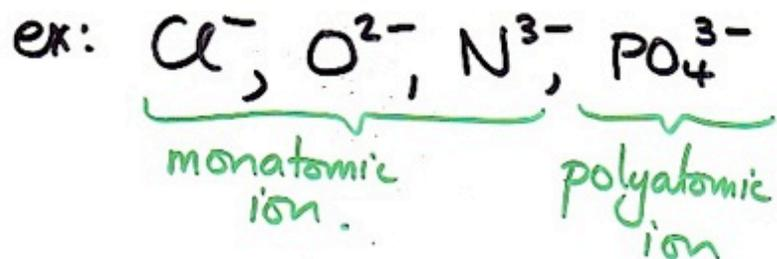 ex: Cl⁻, O²⁻, N³⁻, PO₄³⁻
monatomic
ion.
polyatomic
ion